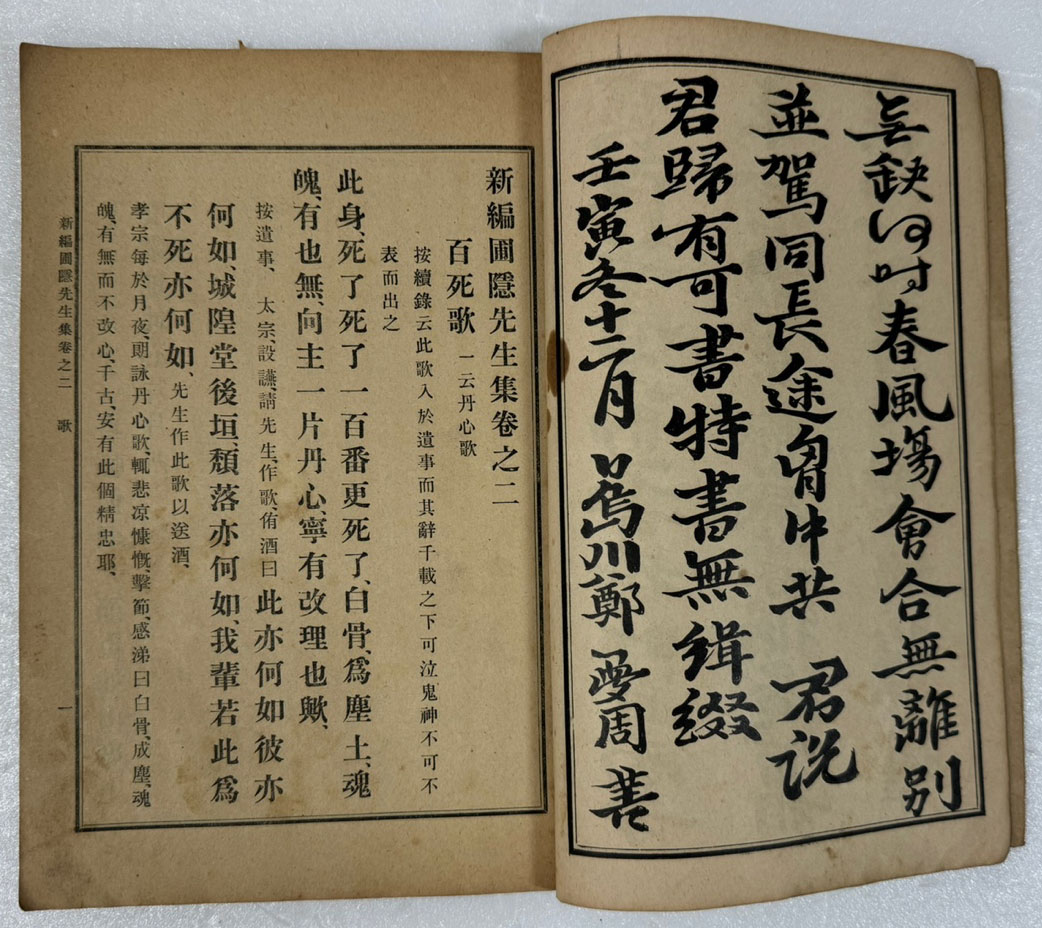 无缺何时春風場會合無離別
並駕同長途胷中共 君说
君歸有可書特書無緝綴
壬寅冬十二月 烏川鄭 夢周
新編圃隱先生集卷之二
百死歌 一云丹心歌
按續錄云此歌入於遺事而其辭千載之下可泣鬼神不可不
表而出之
此身、死了死了一百番更死了、白骨、爲塵土、魂
魄、有也無、向主一片丹心、寧有改理也歟、
按遺事、 太宗、設讌、請先生、作歌、侑酒曰 此亦何如彼亦
何如、城隍堂後垣、頹落亦何如、我輩若此爲
不死亦何如、先生作此歌以送酒、
孝宗每於月夜、朗詠丹心歌、輒悲凉慷慨、擊節、感涕曰白骨、成塵、魂
魄、有無而不改心、千古、安有此個精忠耶、
新編圃隱先生集卷之二 歌 一